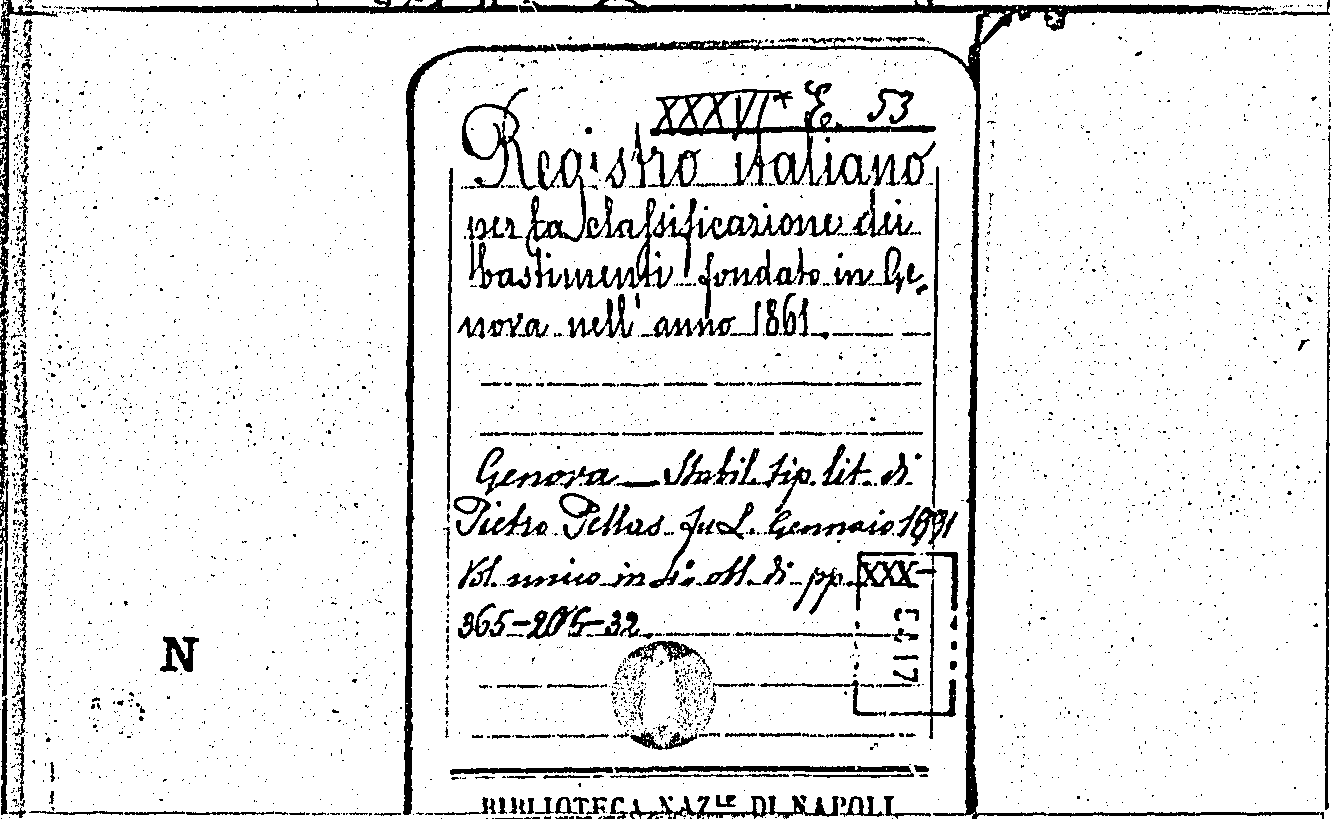 XXXVI* E. 53
Registro italiano
per la classificazione dei
bastimenti fondato in Ge-
nova nell'anno 1861.
Genova — Stabil. tip. lit. di
Pietro Pellas fu L. Gennaio 1891
Vol. unico in 4° obl. di pp. XXX-
365-205-32.
N
BIBLIOTECA NAZLE DI NAPOLI